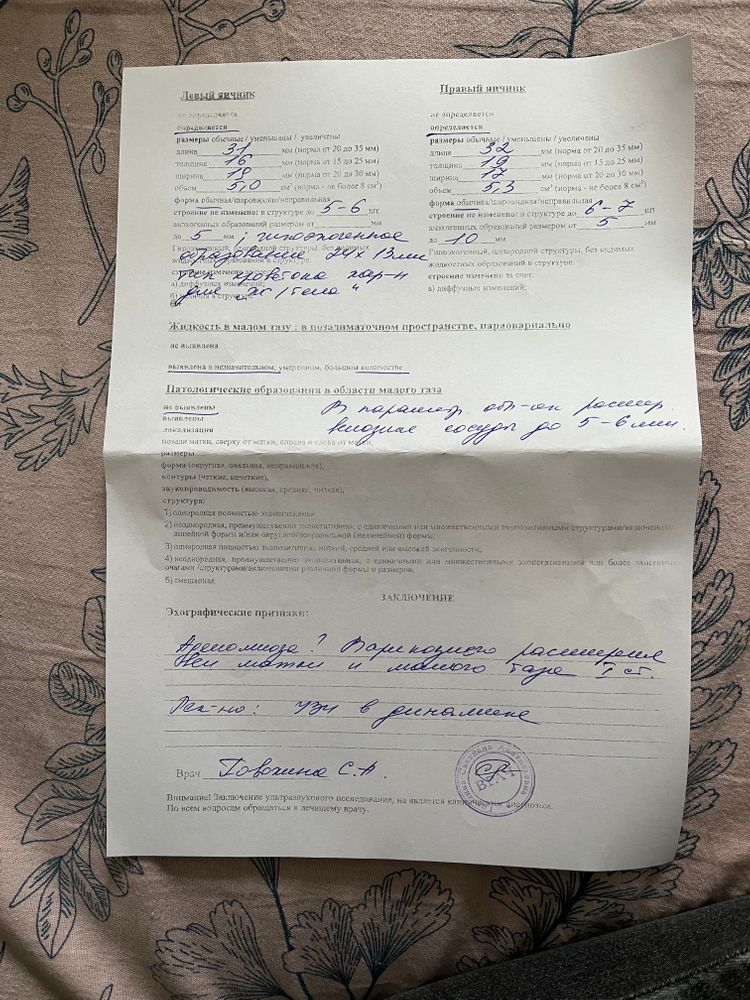 Левый яичник
не определяется
определяется
размеры обычные / уменьшены / увеличены
длина 31 мм (норма от 20 до 35 мм)
толщина 16 мм (норма от 15 до 25 мм)
ширина 19 мм (норма от 20 до 30 мм)
объем 5,0 см³ (норма - не более 8 см³)
форма обычная/шаровидная/неправильная
строение не изменено: в структуре до 5-6 шт
анэхогенных образований размером от мм
до 5 мм ; гипоэхогенное
образование 24х13мм
кровотока хар-н
для "ж/тела"
Правый яичник
не определяется
определяется
размеры обычные / уменьшены / увеличены
длина 32 мм (норма от 20 до 35 мм)
толщина 19 мм (норма от 15 до 25 мм)
ширина 17 мм (норма от 20 до 30 мм)
объем 5,3 см³ (норма - не более 8 см³)
форма обычная/шаровидная/неправильная
строение не изменено: в структуре до 6-7 шт
анэхогенных образований размером от 5 мм
до 10 мм
Гипоэхогенный, однородной структуры, без видимых
жидкостных образований в структуре.
строение изменено за счет:
а) диффузных изменений;
Жидкость в малом тазу : в позадиматочном пространстве, парвовариально
не выявлена
выявлена в незначительном, умеренном, большом количестве
Патологические образования в области малого таза
не выявлены
выявлены
локализация
В параметр. обл-ях расшир.
сосуды до 5-6мм.
позади матки, сверху от матки, справа и слева от матки,
размеры
форма (округлая, овальная, неправильная),
контуры (четкие, нечеткие),
звукопроводимость (высокая, средняя, низкая),
структура:
1) однородная полностью эхонегативная
2) неоднородная, преимущественно эхонегативная, с единичными или множественными эхопозитивными структурами/включениями
линейной формы и/или округлой/неправильной (нелинейной) формы;
3) однородная полностью эхопозитивная низкой, средней или высокой эхогенности;
4) неоднородная, преимущественно эхопозитивная, с единичными или множественными эхонегативными или более эхогенными
очагами /структурами/включениями различной формы и размеров,
5) смешанная.
ЗАКЛЮЧЕНИЕ
Эхографические признаки:
Аденомиоза? Варикозного расширения
вен матки и малого таза I ст.
Рек-но: УЗИ в динамике
Врач Говохина С.А.
ВРАЧ
Внимание! Заключение ультразвукового исследования, не является клиническим диагнозом.
По всем вопросам обращаться к лечащему врачу.